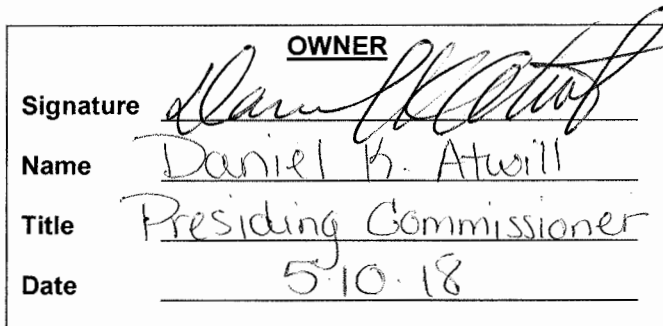 OWNER
Signature Daniel K Atwill
Name Daniel K. Atwill
Title Presiding Commissioner
Date 5.10.18